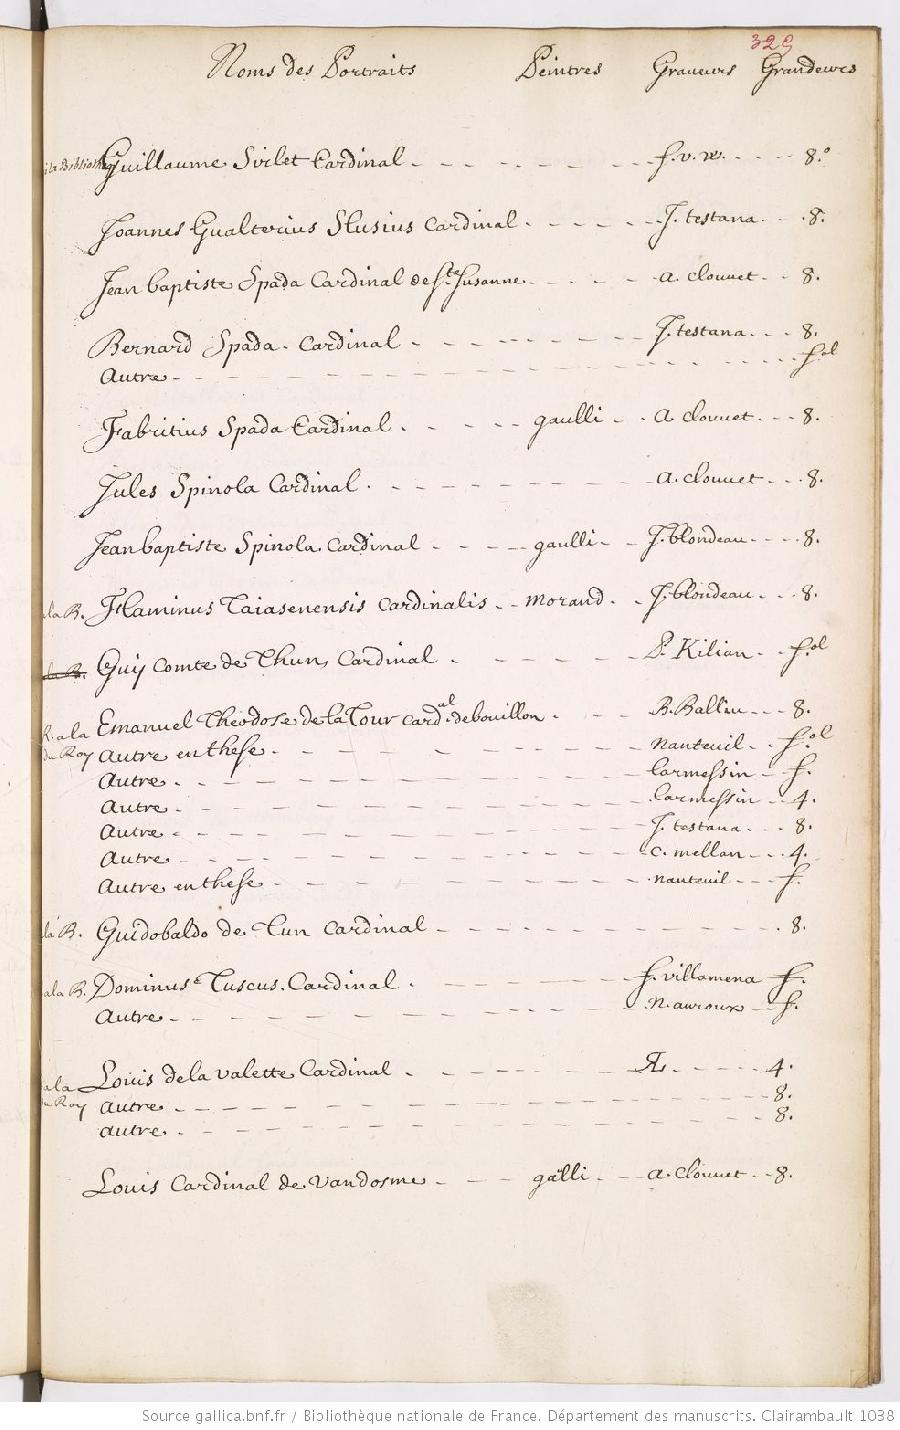 329
Noms des Portraits Peintres Graveurs Grandeurs
a la Biblioth Guillaume Sirlet Cardinal f. v. w. 8.º
Joannes Gualterius Slusius Cardinal J. testana 8.
Jean baptiste Spada Cardinal de Ste Susanne a. Clouuet 8.
Bernard Spada. Cardinal J. testana 8.
Autre fol
Fabritius Spada Cardinal gaulli a Clouuet 8.
Jules Spinola Cardinal a. Clouuet 8.
Jean baptiste Spinola Cardinal gaulli J. blondeau 8.
a la B. Flaminus Taiasenensis Cardinalis Morand J. blondeau 8.
a la B. Guy Comte de Thun, Cardinal P. Kilian fol
R. a la Emanuel Theodose de la Tour Card.al de bouillon B. Balliu 8.
du Roy Autre en these nanteuil fol
Autre larmessin f.
Autre larmessin 4.
Autre J. testana 8.
Autre C. mellan 4.
Autre en these nanteuil f.
a la B. Guidobaldo de Tun Cardinal 8.
a la B. Dominus Tuscus. Cardinal f. villamena f.
Autre n. auroux f.
a la Louis de la valette Cardinal 4.
du Roy Autre 8.
Autre 8.
Louis Cardinal de Vandosme galli a. Clouuet 8.
Source gallica.bnf.fr / Bibliothèque nationale de France. Département des manuscrits. Clairambault 1038